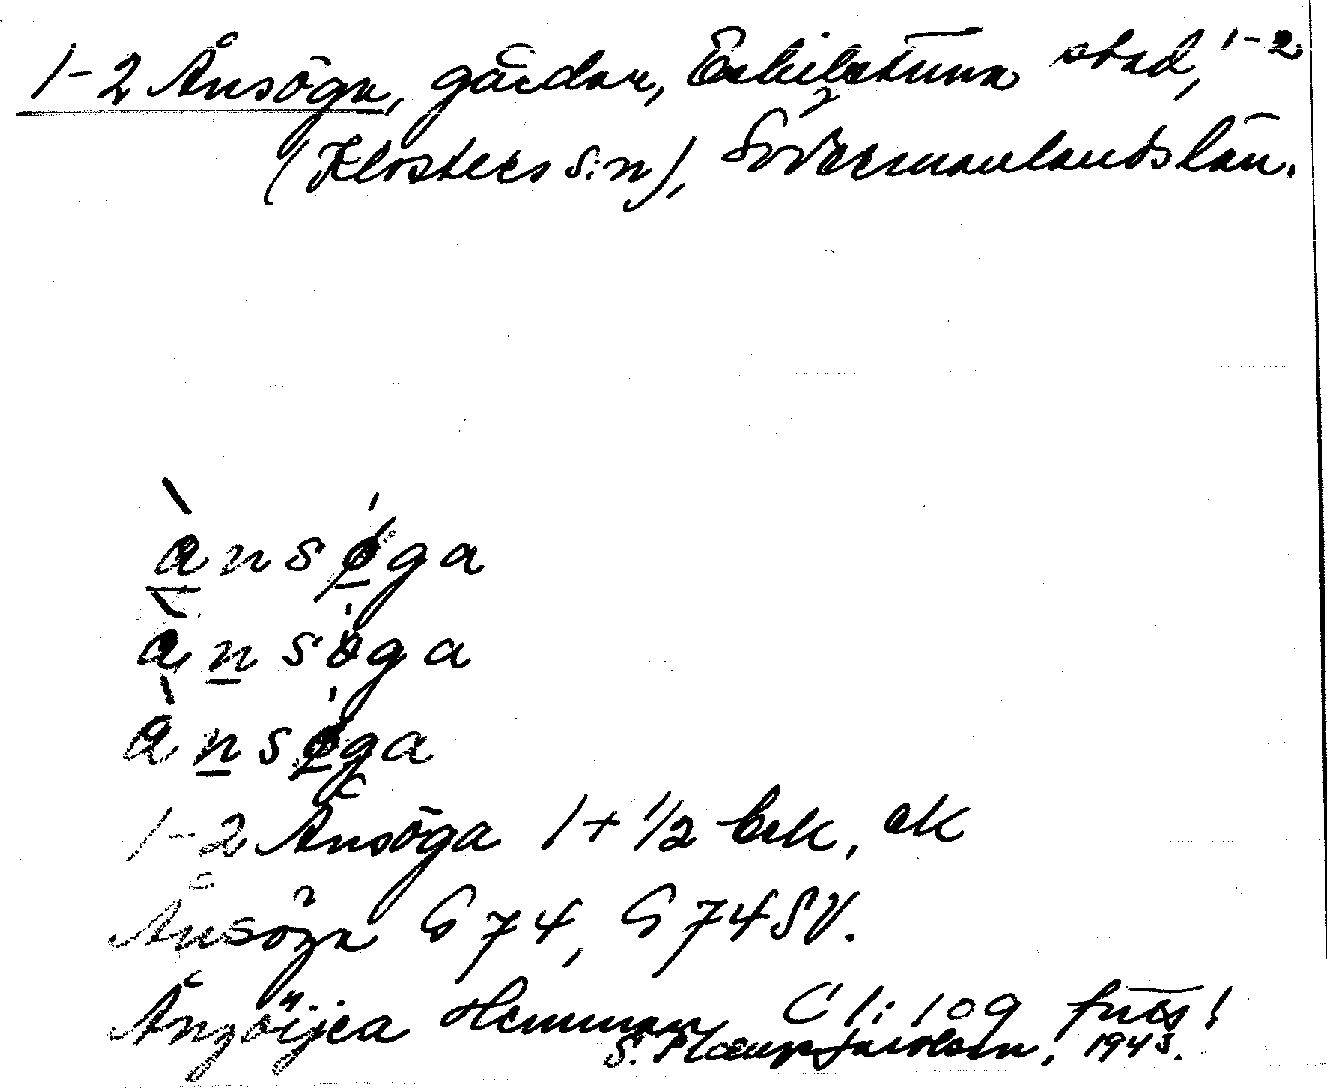 1-2 Ånsöga, gårdar, Eskilstuna stad, 1-2
(Klosters s:n), Södermanlands län.
ànsø̀ga
ànsöga
ànsøga
1-2 Ånsöga 1 + 1/2 bek, ek
Ånsöga G 74, G 74 SV.
Ånzöijea Hemman C 1: 109
1943.